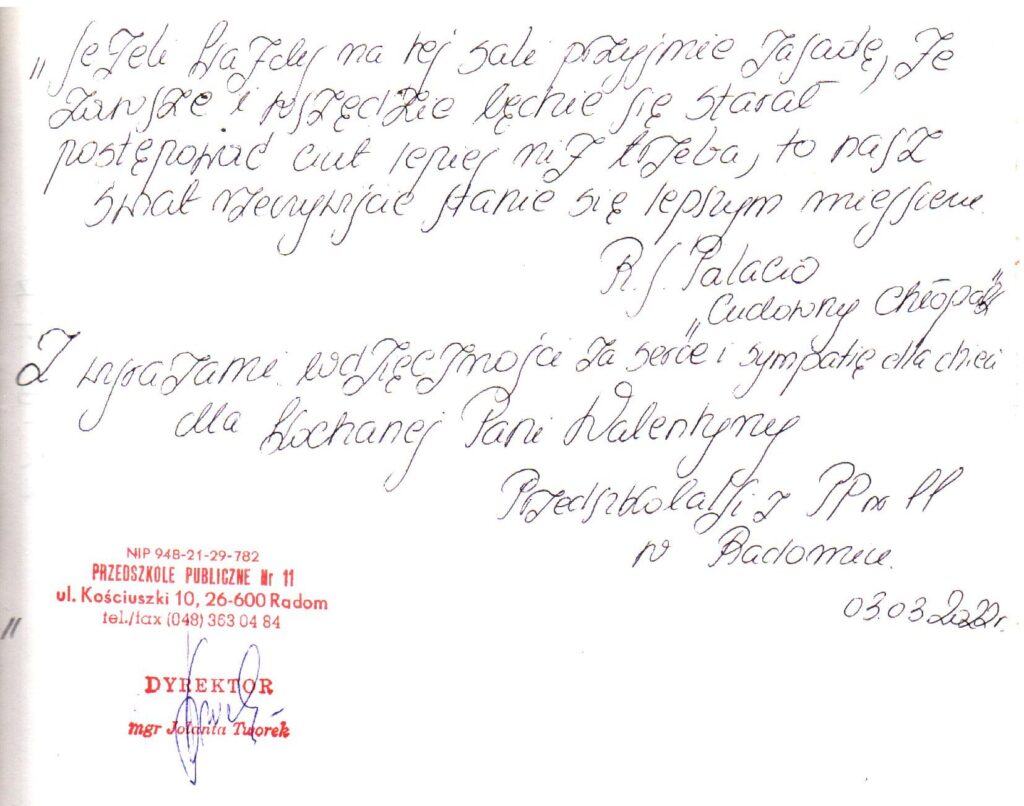 „Jeżeli każdy na tej sali przyjmie zasadę, że
zawsze i wszędzie będzie się starał
postępować ciut lepiej niż trzeba, to nasz
świat rzeczywiście stanie się lepszym miejscem.
R.J. Palacio
„Cudowny Chłopak”
Z wyrazami wdzięczności za serce i sympatię dla dzieci
dla Kochanej Pani Walentyny
Przedszkolaki z PP nr 11
w Radomiu.
03.03.2022r.
NIP 948-21-29-782
PRZEDSZKOLE PUBLICZNE Nr 11
ul. Kościuszki 10, 26-600 Radom
tel./fax (048) 363 04 84
DYREKTOR
mgr Jolanta Tworek